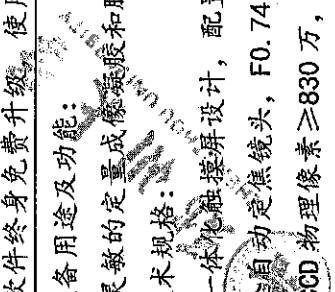 软件终身免费升级 使用
备用途及功能：
灵敏的定量成像凝胶和
术规格：
一体化触摸屏设计，配
自动定焦镜头，F0.74
CCD 物理像素≥830 万，